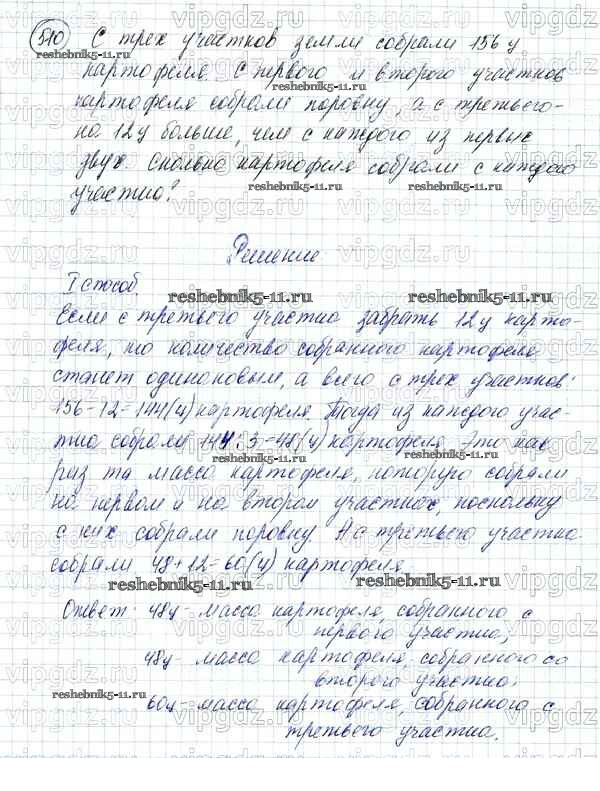 510 С трех участков земли собрали 156 ц
картофеля. С первого и второго участков
картофеля собрали поровну, а с третьего -
на 12 ц больше, чем с каждого из первых
двух. Сколько картофеля собрали с каждого
участка?
Решение
I способ.
Если с третьего участка забрать 12 ц карто-
феля, то количество собранного картофеля
станет одинаковым, а всего с трех участков:
156-12=144(ц) картофеля. Тогда из каждого учас-
тка собрали 144:3=48(ц) картофеля. Это как
раз та масса картофеля, которую собрали
на первом и на втором участках, поскольку
с них собрали поровну. А с третьего участка
собрали 48+12=60(ц) картофеля.
Ответ: 48ц - масса картофеля, собранного с
первого участка;
48ц - масса картофеля, собранного со
второго участка;
60ц - масса картофеля, собранного с
третьего участка.
reshebnik5-11.ru
vipgdz.ru